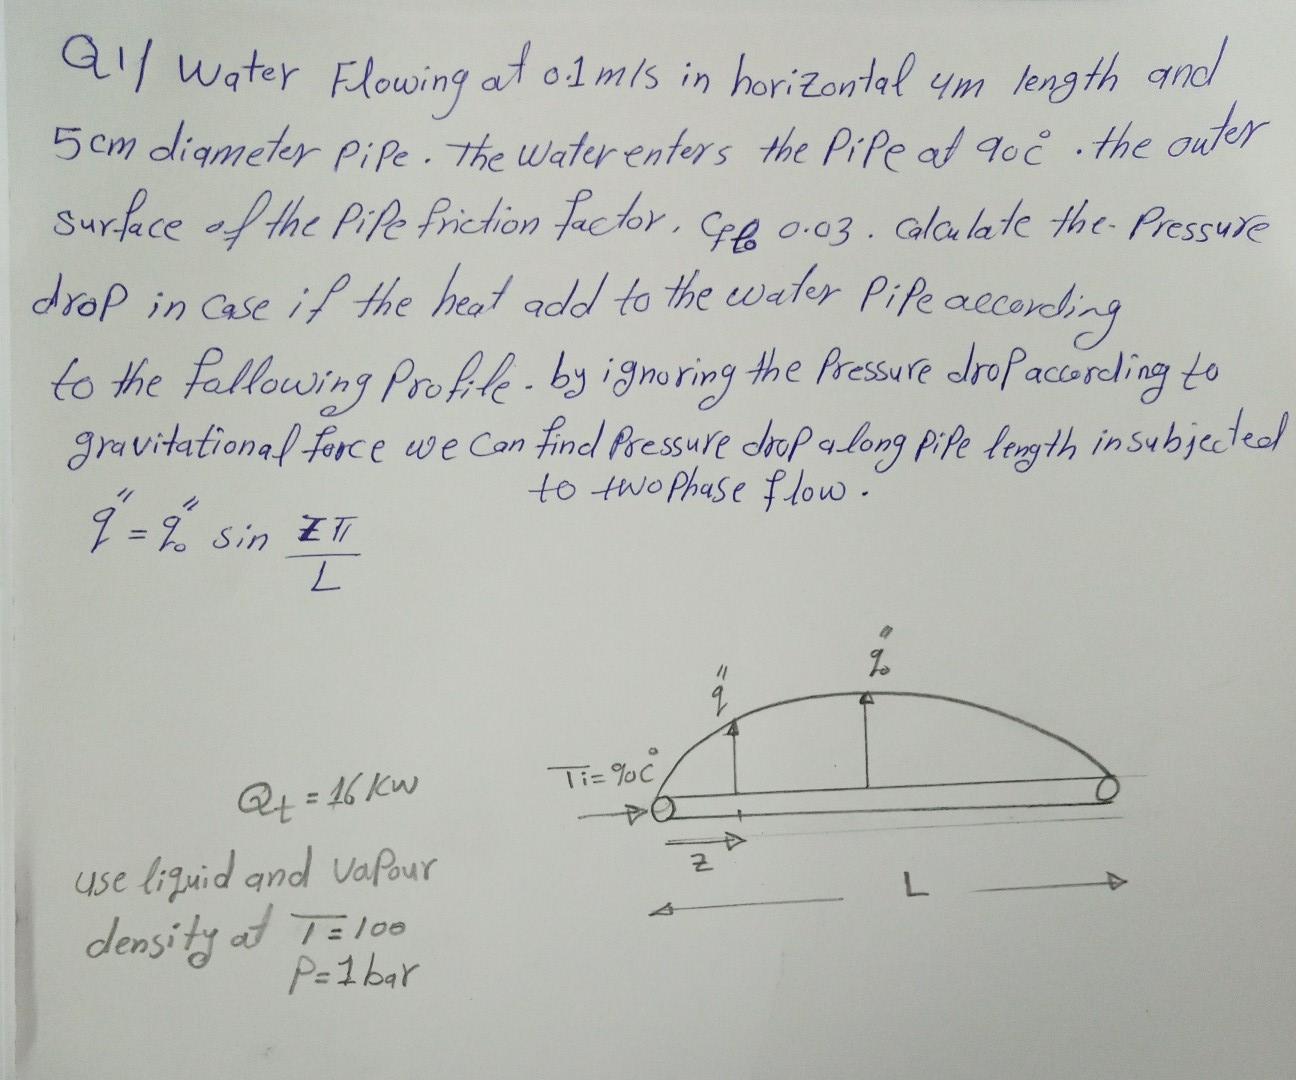 Q1/ Water Flowing at 0.1 m/s in horizontal 4m length and
5 cm diameter pipe. The water enters the Pipe at 90c°. the outer
surface of the Pipe friction factor, Cflo 0.03. calculate the Pressure
drop in case if the heat add to the water Pipe according
to the fallowing Profile. by ignoring the Pressure drop according to
gravitational force we can find Pressure drop along pipe length in subjected
to two Phase flow.
q̋ = q̋₀ sin zπ/L
q̋₀
q̋
Ti = 90c°
Qt = 16 kw
z
use liquid and vapour
L
density at T=100
P=1bar